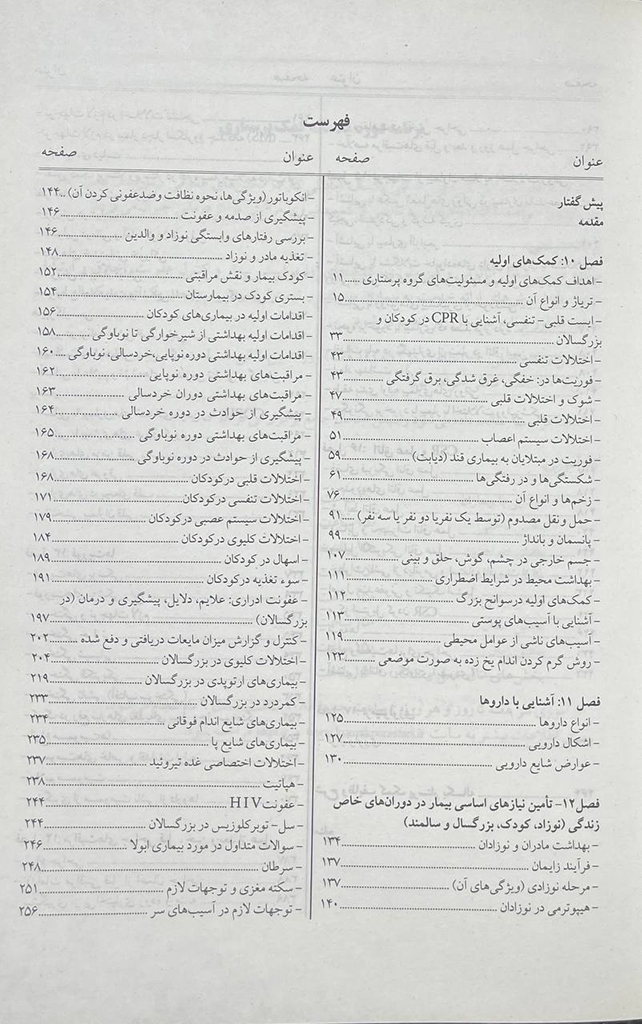 فهرست
عنوان صفحه
پیش گفتار
مقدمه
فصل ۱۰: کمک‌های اولیه
- اهداف کمک‌های اولیه و مسئولیت‌های گروه پرستاری .... ۱۱
- تریاژ و انواع آن .... ۱۵
- ایست قلبی- تنفسی، آشنایی با CPR در کودکان و
بزرگسالان .... ۳۳
- اختلالات تنفسی .... ۴۳
- فوریت‌ها در: خفگی، غرق شدگی، برق گرفتگی .... ۴۳
- شوک و اختلالات قلبی .... ۴۷
- اختلالات قلبی .... ۴۹
- اختلالات سیستم اعصاب .... ۵۱
- فوریت در مبتلایان به بیماری قند (دیابت) .... ۵۹
- شکستگی‌ها و در رفتگی‌ها .... ۶۱
- زخم‌ها و انواع آن .... ۷۶
- حمل و نقل مصدوم (توسط یک نفر یا دو نفر یا سه نفر) .... ۹۱
- پانسمان و بانداژ .... ۹۹
- جسم خارجی در چشم، گوش، حلق و بینی .... ۱۰۷
- بهداشت محیط در شرایط اضطراری .... ۱۱۱
- کمک‌های اولیه درسوانح بزرگ .... ۱۱۲
- آشنایی با آسیب‌های پوستی .... ۱۱۳
- آسیب‌های ناشی از عوامل محیطی .... ۱۱۹
- روش گرم کردن اندام یخ زده به صورت موضعی .... ۱۲۳
فصل ۱۱: آشنایی با داروها
- انواع داروها .... ۱۲۵
- اشکال دارویی .... ۱۲۷
- عوارض شایع دارویی .... ۱۳۰
فصل ۱۲- تأمین نیازهای اساسی بیمار در دوران‌های خاص
زندگی (نوزاد، کودک، بزرگسال و سالمند)
- بهداشت مادران و نوزادان .... ۱۳۴
- فرآیند زایمان .... ۱۳۷
- مرحله نوزادی (ویژگی‌های آن) .... ۱۳۷
- هیپوترمی در نوزادان .... ۱۴۰
عنوان صفحه
- انکوباتور (ویژگی‌ها، نحوه نظافت و ضدعفونی کردن آن) .. ۱۴۴
- پیشگیری از صدمه و عفونت .... ۱۴۶
- بررسی رفتارهای وابستگی نوزاد و والدین .... ۱۴۶
- تغذیه مادر و نوزاد .... ۱۴۸
- کودک بیمار و نقش مراقبتی .... ۱۵۲
- بستری کودک در بیمارستان .... ۱۵۴
- اقدامات اولیه در بیماری‌های کودکان .... ۱۵۶
- اقدامات اولیه بهداشتی از شیرخوارگی تا نوباوگی .... ۱۵۸
- اقدامات اولیه بهداشتی دوره نوپایی،خردسالی، نوباوگی .... ۱۶۰
- مراقبت‌های بهداشتی دوره نوپایی .... ۱۶۲
- مراقبت‌های بهداشتی دوران خردسالی .... ۱۶۳
- پیشگیری از حوادث در دوره خردسالی .... ۱۶۴
- مراقبت‌های بهداشتی دوره نوباوگی .... ۱۶۵
- پیشگیری از حوادث در دوره نوباوگی .... ۱۶۸
- اختلالات قلبی درکودکان .... ۱۶۸
- اختلالات تنفسی درکودکان .... ۱۷۱
- اختلالات سیستم عصبی درکودکان .... ۱۷۹
- اختلالات کلیوی درکودکان .... ۱۸۴
- اسهال در کودکان .... ۱۸۹
- سوء تغذیه درکودکان .... ۱۹۱
- عفونت ادراری: علایم، دلایل، پیشگیری و درمان (در
بزرگسالان) .... ۱۹۷
- کنترل و گزارش میزان مایعات دریافتی و دفع شده .... ۲۰۲
- اختلالات کلیوی در بزرگسالان .... ۲۰۴
- بیماری‌های ارتوپدی در بزرگسالان .... ۲۱۹
- کمردرد در بزرگسالان .... ۲۳۳
- بیماری‌های شایع اندام فوقانی .... ۲۳۴
- بیماری‌های شایع پا .... ۲۳۵
- اختلالات اختصاصی غده تیروئید .... ۲۳۷
- هپاتیت .... ۲۳۸
- عفونت HIV .... ۲۴۴
- سل- توبرکلوزیس در بزرگسالان .... ۲۴۴
- سوالات متداول در مورد بیماری ابولا .... ۲۴۶
- سرطان .... ۲۴۸
- سکته مغزی و توجهات لازم .... ۲۵۱
- توجهات لازم در آسیب‌های سر .... ۲۵۶